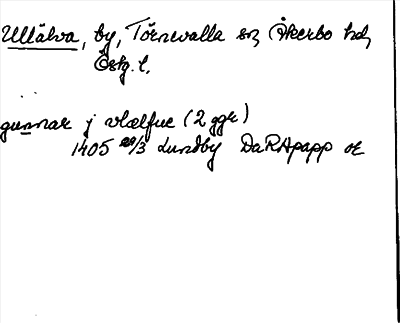 Ullälva, by, Törnevalla sn, Åkerbo hd,
Östg. l.
gunnar j vlælfue (2 ggr)
1405 29/3 Lundby DaRApapp or